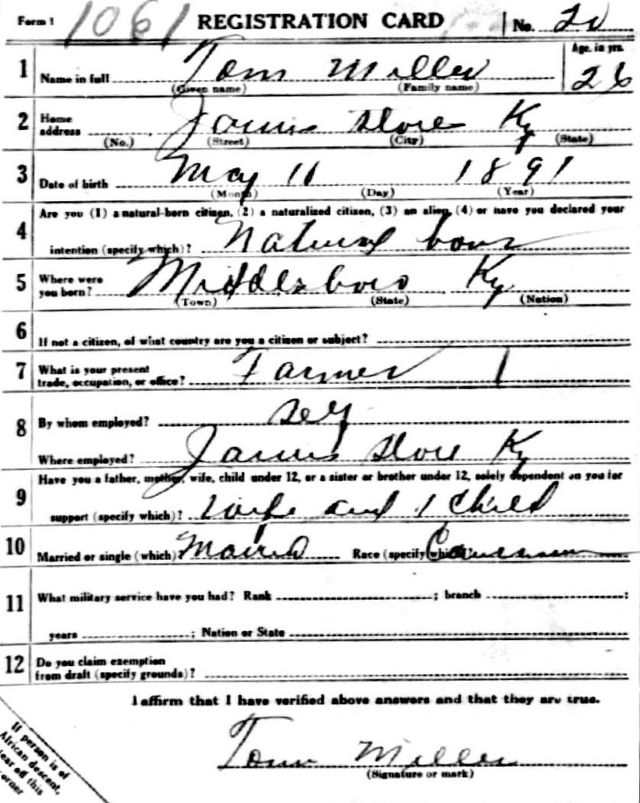 Form 1 1061 REGISTRATION CARD No. 20
1 Name in full Tom Miller Age, in yrs. 26
(Given name) (Family name)
2 Home address Jarvis Store Ky
(No.) (Street) (City) (State)
3 Date of birth May 11 1891
(Month) (Day) (Year)
4 Are you (1) a natural-born citizen, (2) a naturalized citizen, (3) an alien, (4) or have you declared your
intention (specify which)? Natural born
5 Where were you born? Middlesboro Ky
(Town) (State) (Nation)
6 If not a citizen, of what country are you a citizen or subject?
7 What is your present trade, occupation, or office? Farmer 1
8 By whom employed? self
Where employed? Jarvis Store Ky
9 Have you a father, mother, wife, child under 12, or a sister or brother under 12, solely dependent on you for
support (specify which)? Wife and 1 child
10 Married or single (which)? Married Race (specify which)?
11 What military service have you had? Rank ; branch ;
years ; Nation or State
12 Do you claim exemption from draft (specify grounds)?
I affirm that I have verified above answers and that they are true.
Tom Miller
(Signature or mark)
If person is of
African descent,
tear off this
corner